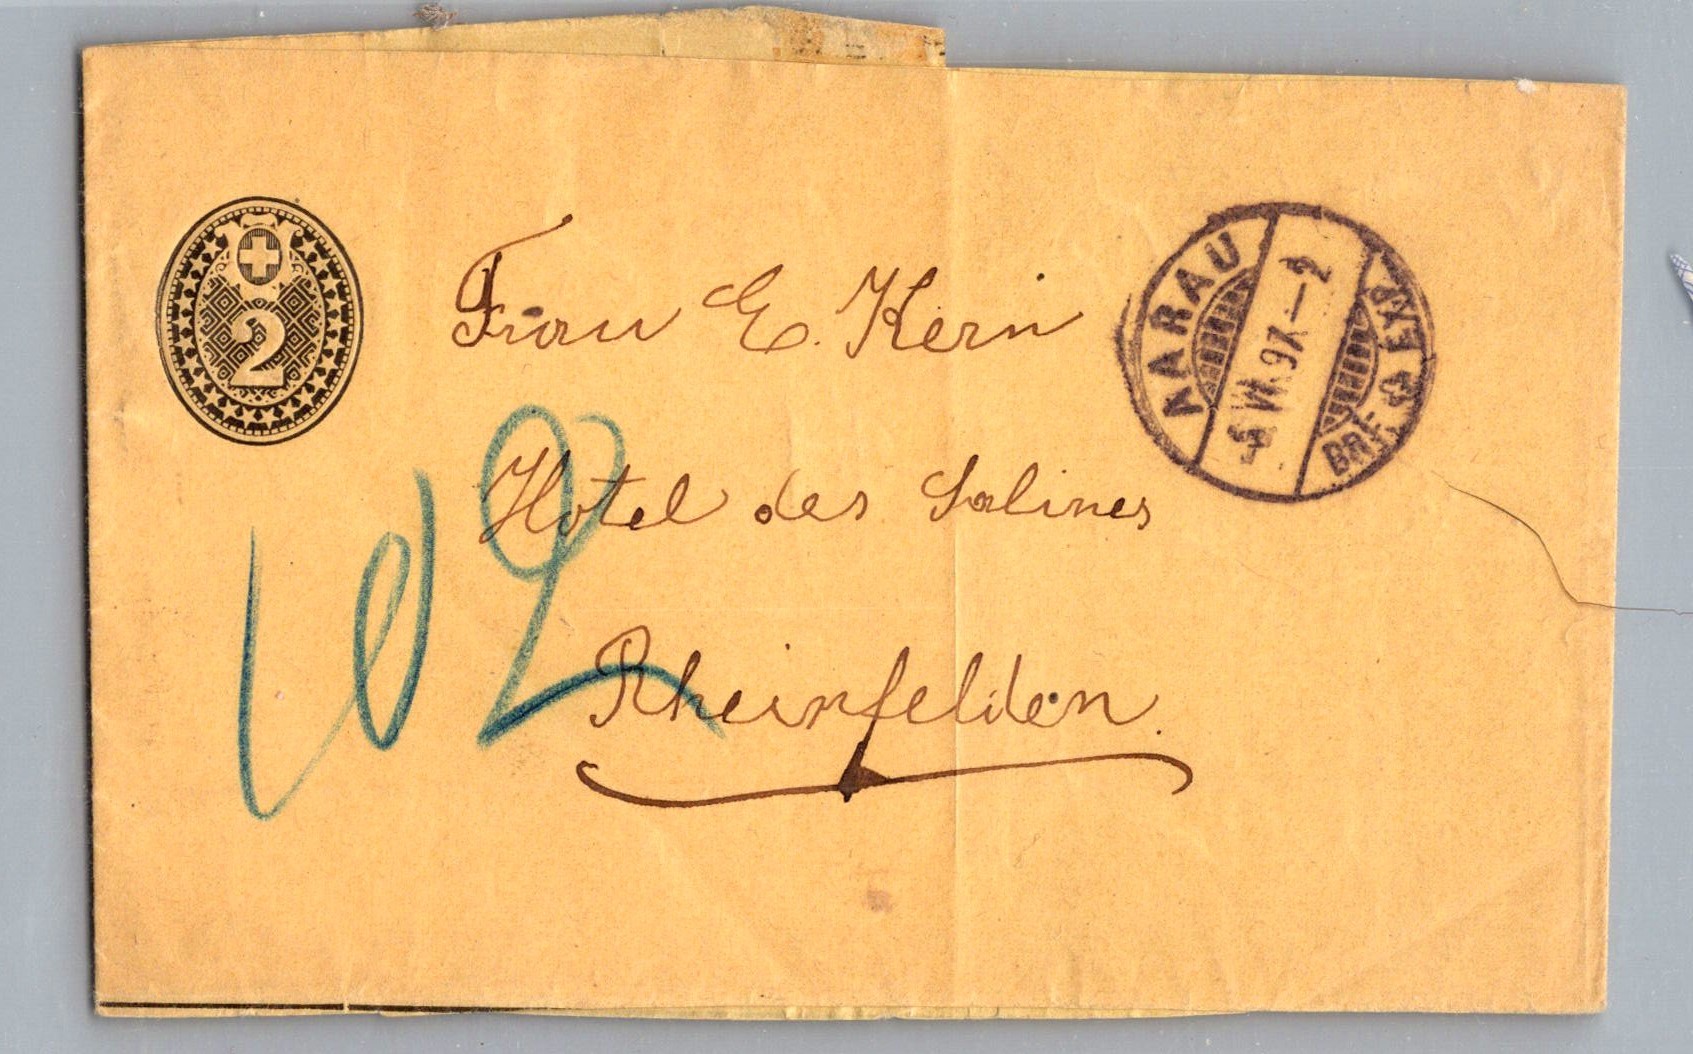 2
Frau E. Kern
Hotel des Salines
Rheinfelden.
102
AARAU
VII.97.–2
BRF. EXP.